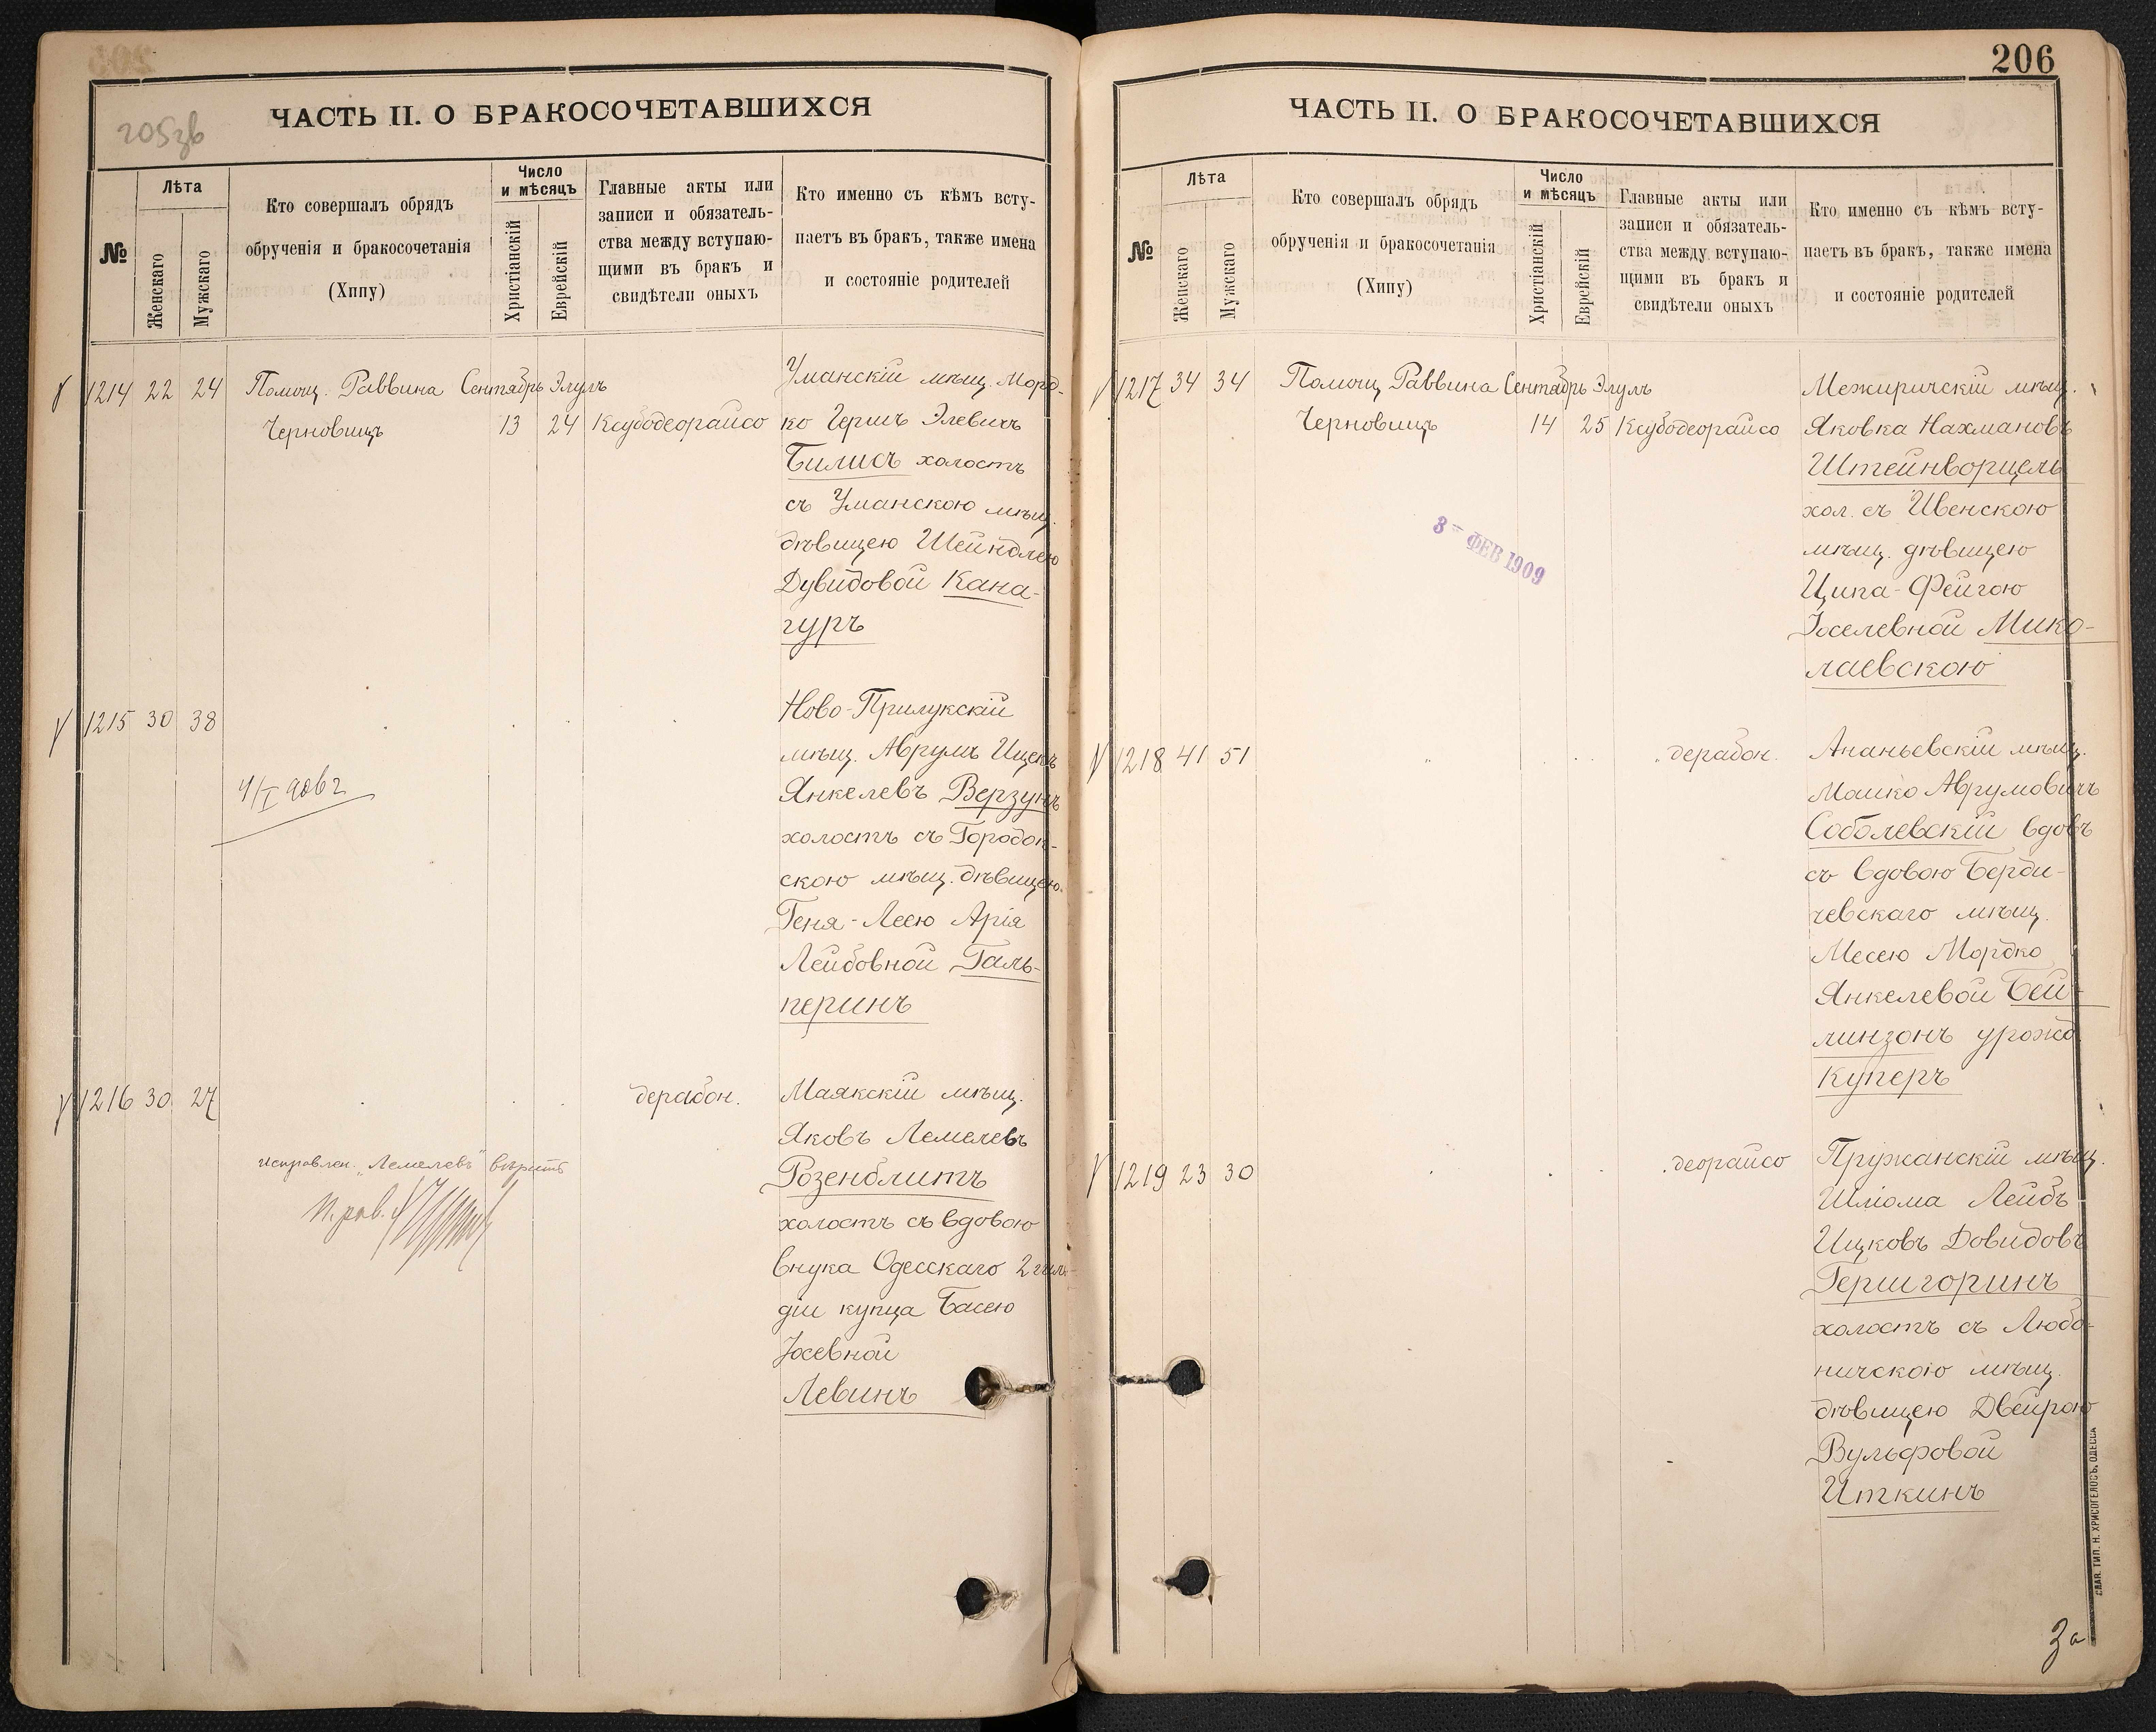 205зв
ЧАСТЬ II. О БРАКОСОЧЕТАВШИХСЯ
№
Лѣта
Женскаго
Мужскаго
Кто совершалъ обрядъ
обрученія и бракосочетанія
(Хипу)
Число
и мѣсяцъ
Христіанскій
Еврейскій
Главные акты или
записи и обязатель-
ства между вступаю-
щими въ бракъ и
свидѣтели оныхъ
Кто именно съ кѣмъ всту-
паетъ въ бракъ, также имена
и состояніе родителей
1214 22 24 Помощ. Раввина Сентябрь Элулъ
Черновицъ 13 24 Ксубодеорайсо
Уманскій мѣщ. Морд-
ко Гершъ Элевичъ
Билисъ холостъ
съ Уманскою мѣщ.
дѣвицею Шейндлею
Дувидовой Кана-
гуръ
1215 30 38
Ново-Прилукскій
мѣщ. Аврумъ Ицекъ
Янкелевъ Верзунъ
холостъ съ Городок-
скою мѣщ. дѣвицею
Геня-Леею Арія
Лейбовной Галь-
перинъ
1216 30 27 дерабон.
Маякскій мѣщ.
Яковъ Лемелевъ
Розенблитъ
холостъ съ вдовою
внука Одесскаго 2 гиль-
діи купца Басею
Іосевной
Левинъ
Исправлен. „Лемелевъ" вѣрить
П. рав.
206
ЧАСТЬ II. О БРАКОСОЧЕТАВШИХСЯ
№
Лѣта
Женскаго
Мужскаго
Кто совершалъ обрядъ
обрученія и бракосочетанія
(Хипу)
Число
и мѣсяцъ
Христіанскій
Еврейскій
Главные акты или
записи и обязатель-
ства между вступаю-
щими въ бракъ и
свидѣтели оныхъ
Кто именно съ кѣмъ всту-
паетъ въ бракъ, также имена
и состояніе родителей
1217 34 34 Помощ Раввина Сентябрь Элулъ
Черновицъ 14 25 Ксубодеорайсо
Межиричскій мѣщ.
Яковка Нахмановъ
Штейнворцель
хол. съ Ивенскою
мѣщ. дѣвицею
Ципа-Фейгою
Іоселевной Мико-
лаевскою
3 - ФЕВ 1909
1218 41 51 дерабон.
Ананьевскій мѣщ.
Мошко Аврумовичъ
Соболевскій вдовъ
съ вдовою Берди-
чевскаго мѣщ.
Месею Мордко
Янкелевой Бей-
линзонъ урожд
Куперъ
1219 23 30 деорайсо
Пружанскій мѣщ.
Шліома Лейбъ
Ицковъ Довидовъ
Гершгоринъ
холостъ съ Любо-
ничскою мѣщ.
дѣвицею Двейрою
Вульфовой
Иткинъ
СЛАВ. ТИП. Н. ХРИСОГЕЛОСЪ, ОДЕССА